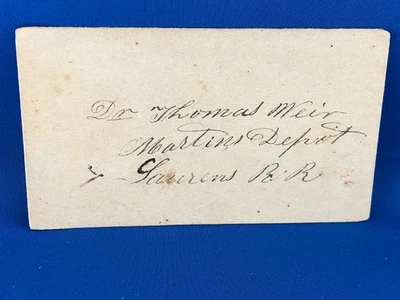 Dr Thomas Weir
Martins Depot
Laurens R. R